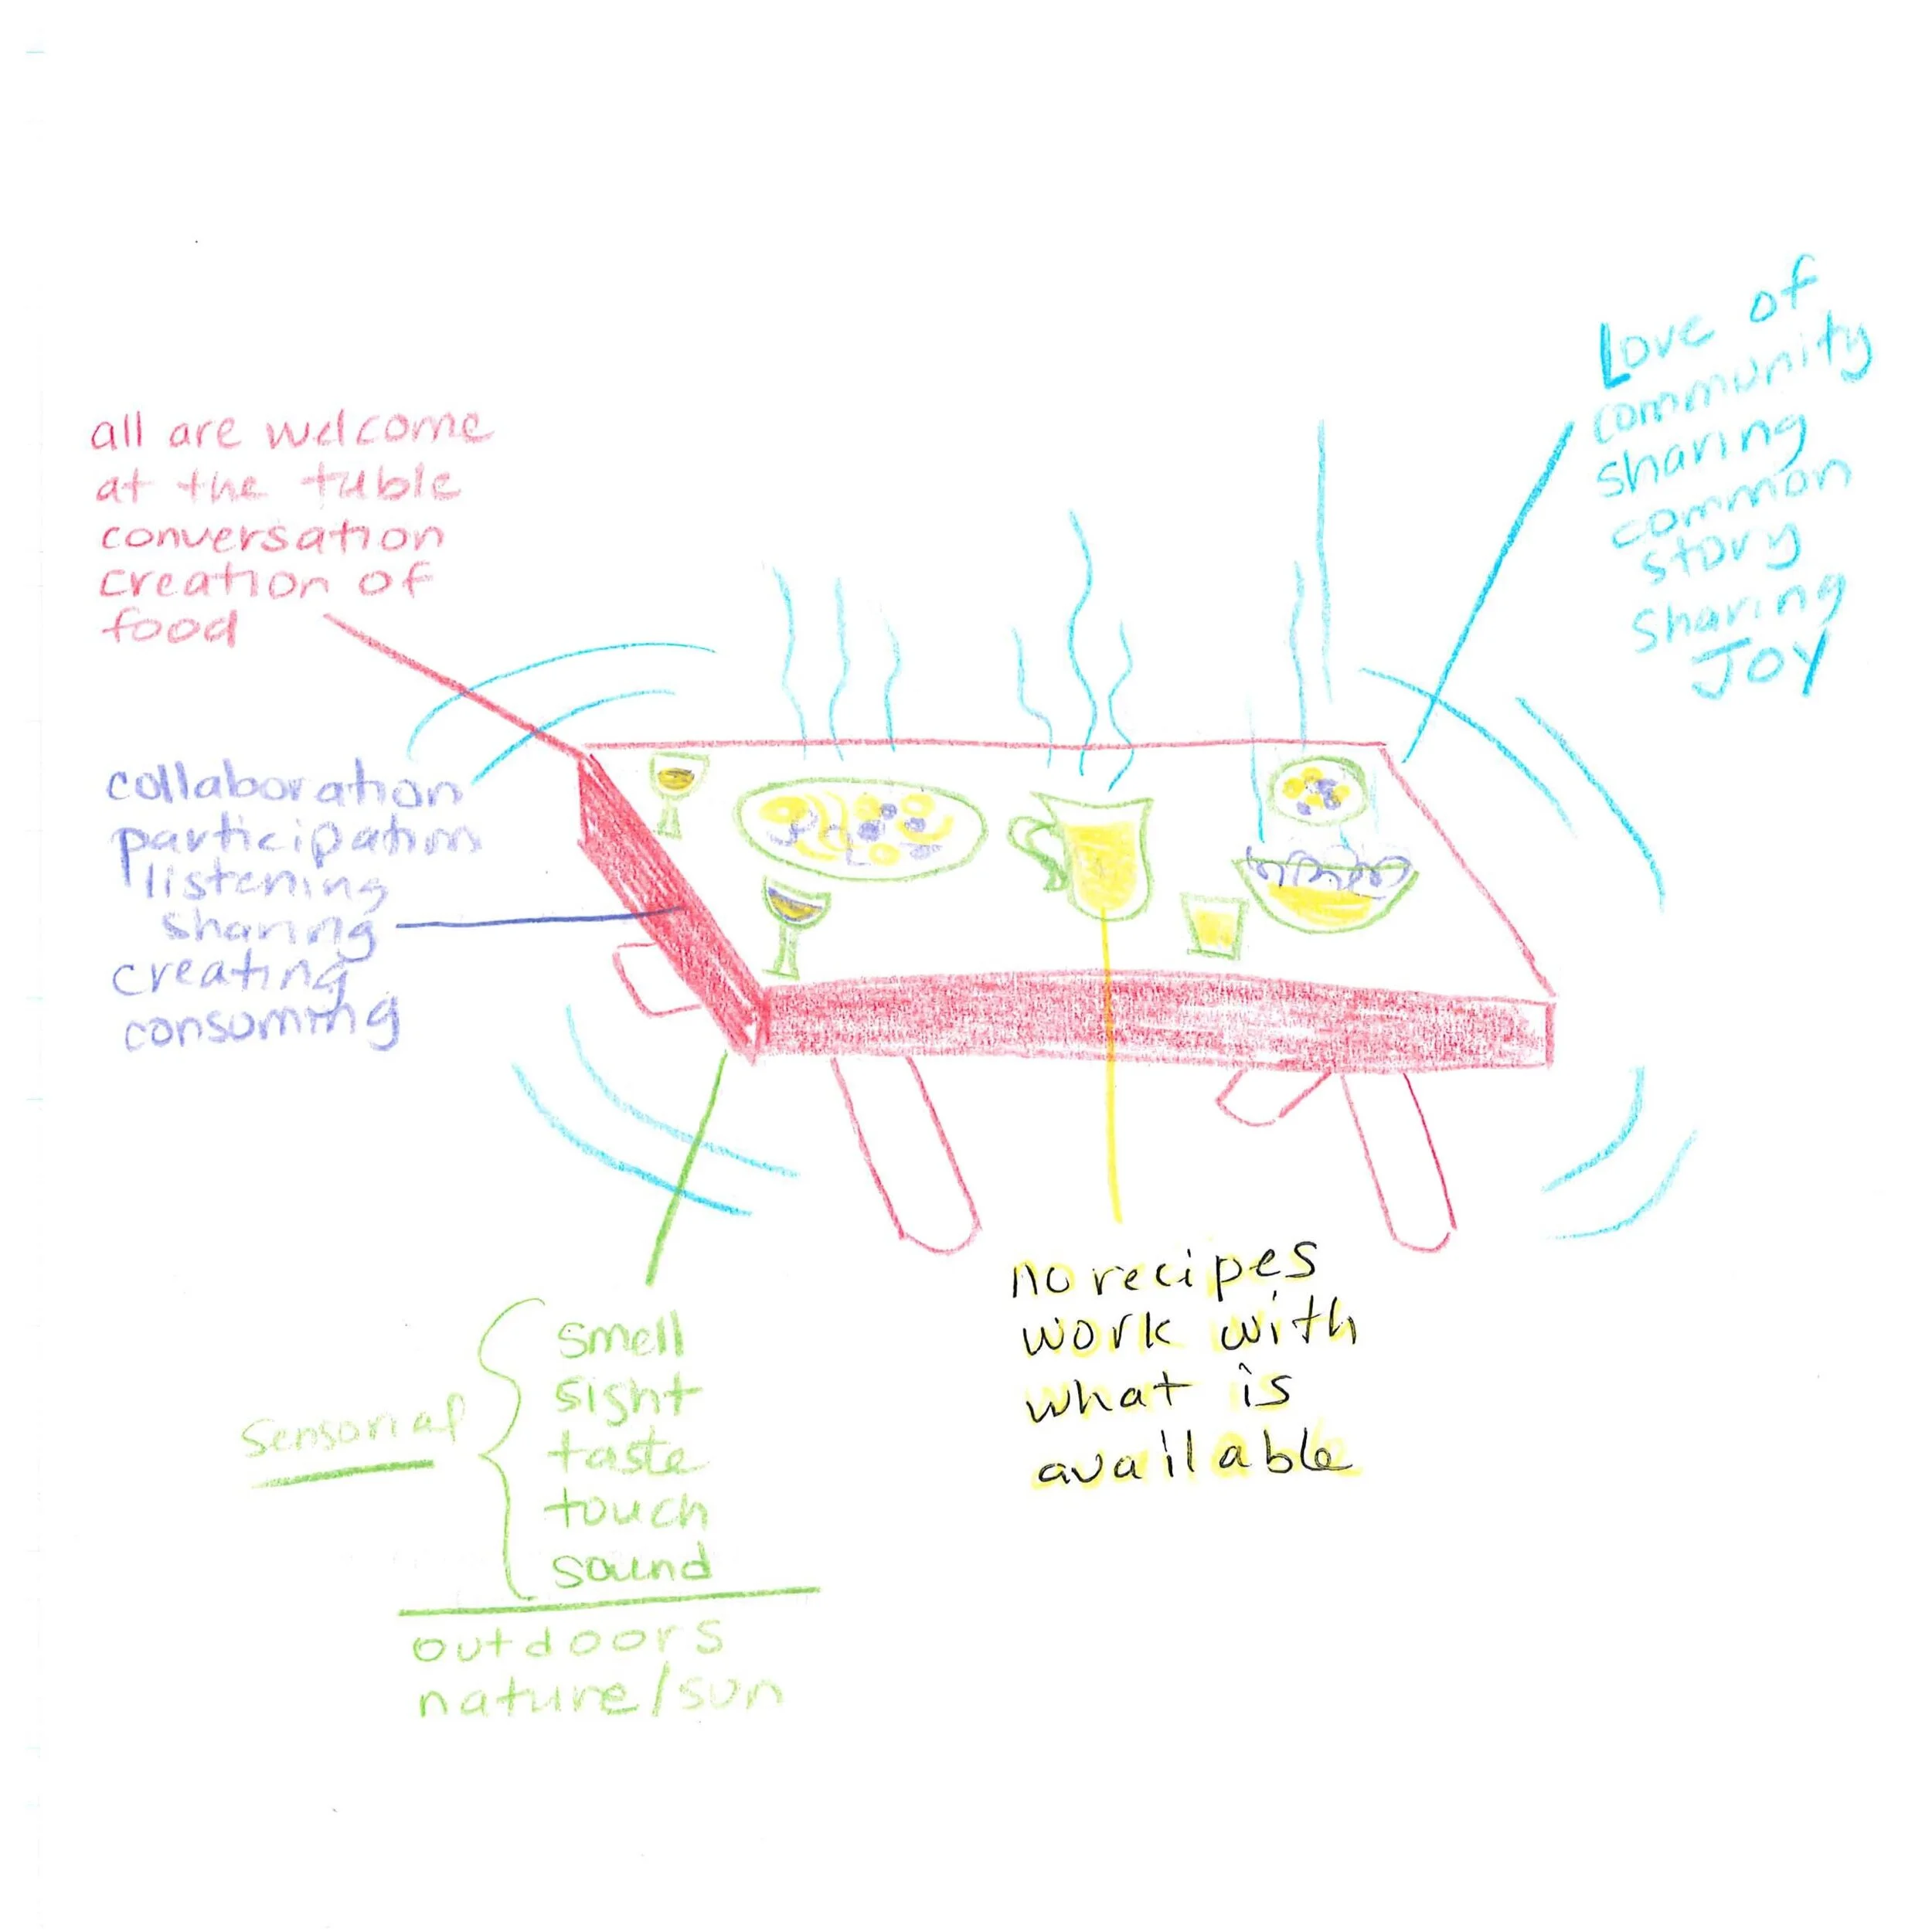 all are welcome
at the table
conversation
creation of
food
collaboration
participation
listening
sharing
creating
consuming
Love of
community
sharing
common
story
sharing
JOY
sensorial
smell
sight
taste
touch
sound
outdoors
nature/sun
no recipes
work with
what is
available